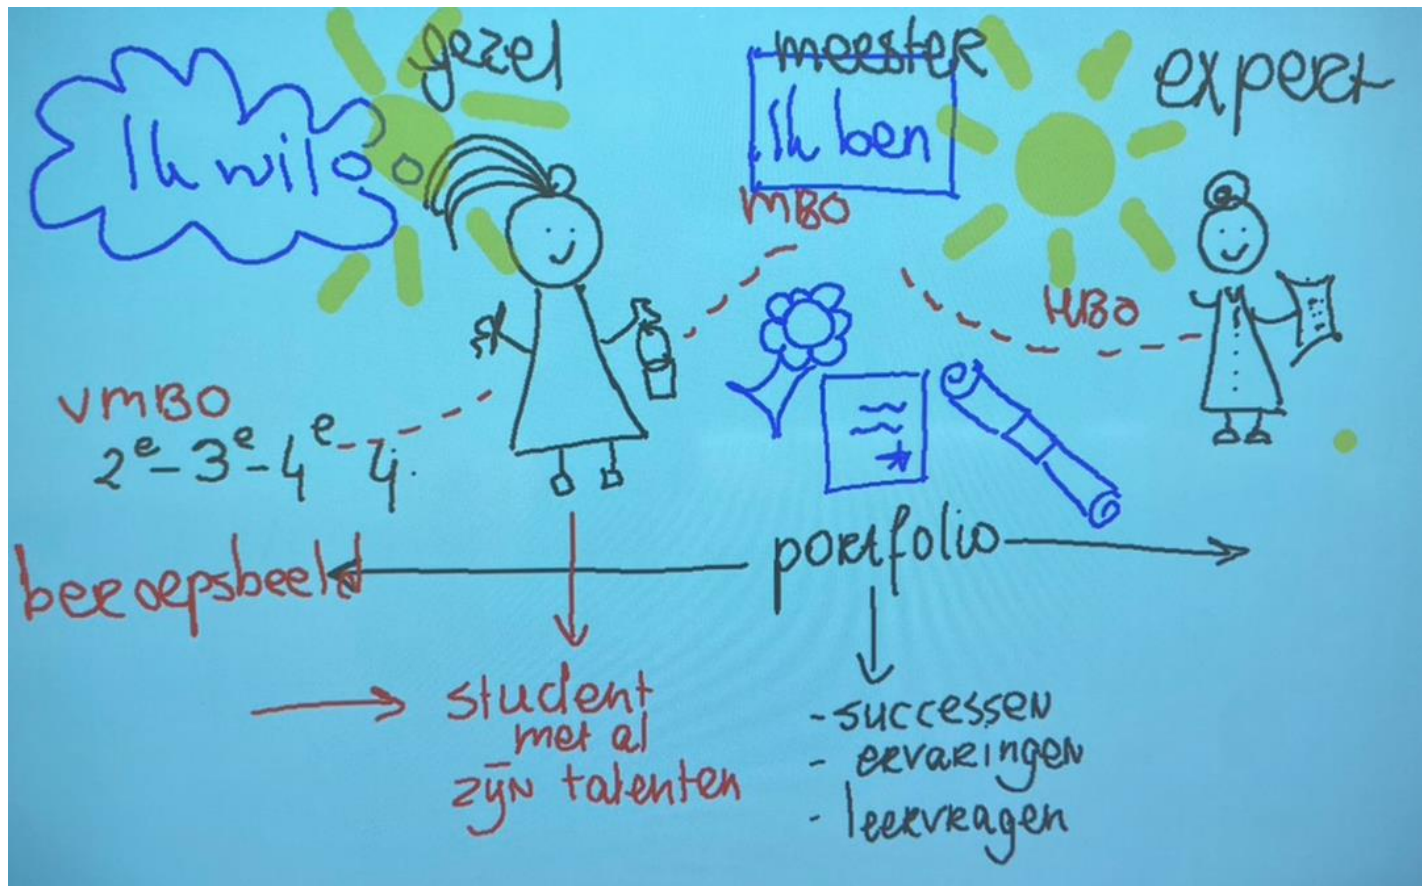 gezel
meester
expert
Ik wil
Ik ben
MBO
HBO
VMBO
2e - 3e - 4e 4j.
beroepsbeeld
portfolio
student
met al
zijn talenten
- successen
- ervaringen
- leervragen